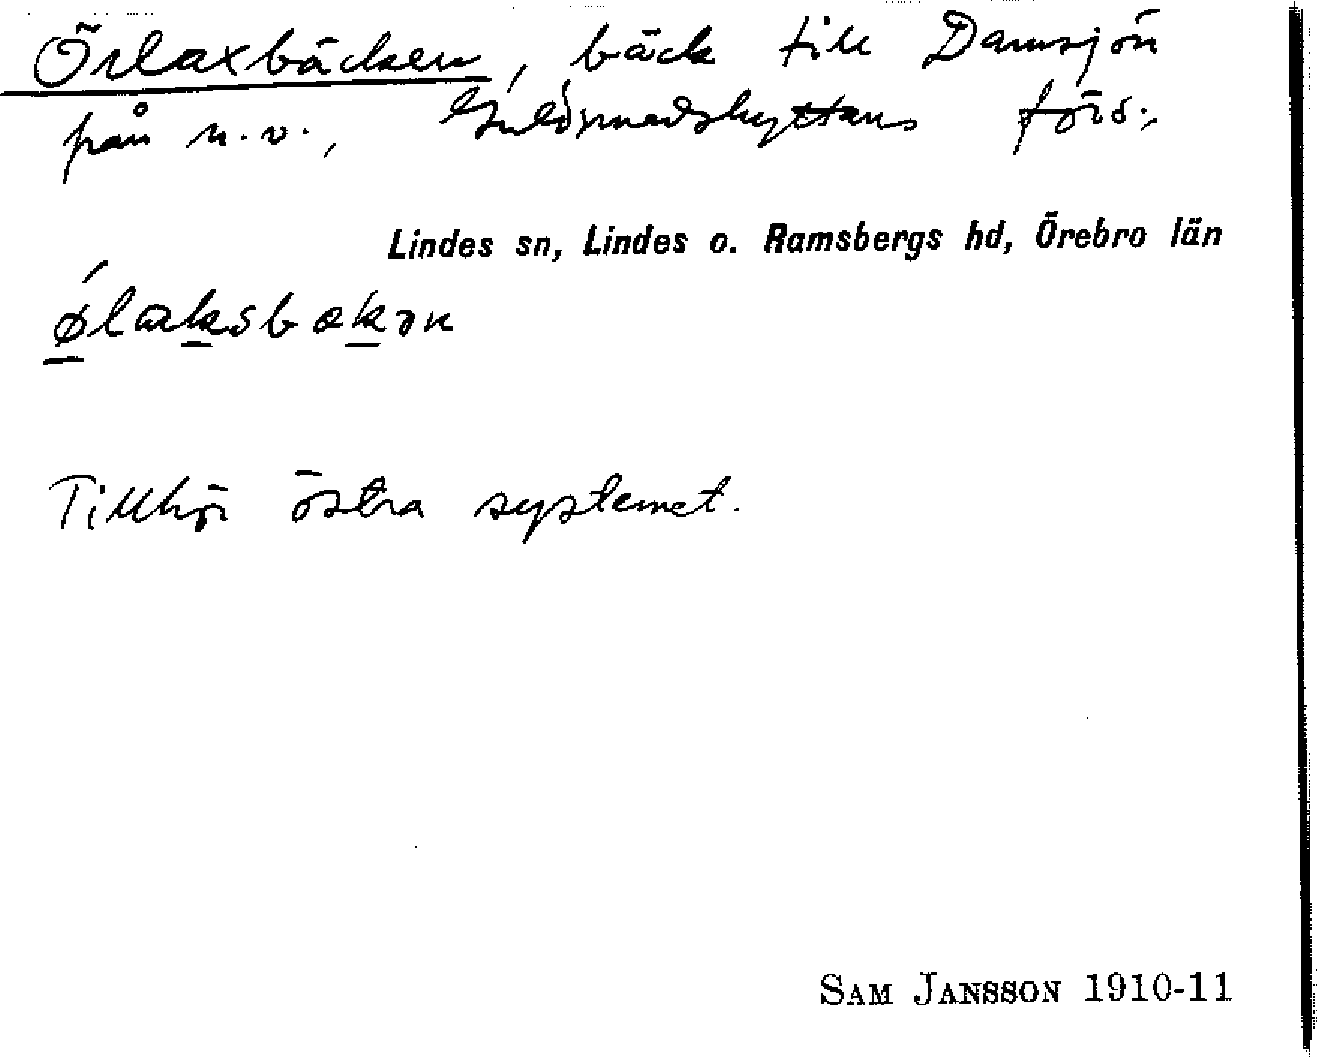 Örlaxbäcken, bäck till Damsjön
från n.v., Guldsmedshyttans förs.,
Lindes sn, Lindes o. Ramsbergs hd, Örebro län
ǿlaksbækən
Tillhör östra systemet.
SAM JANSSON 1910-11